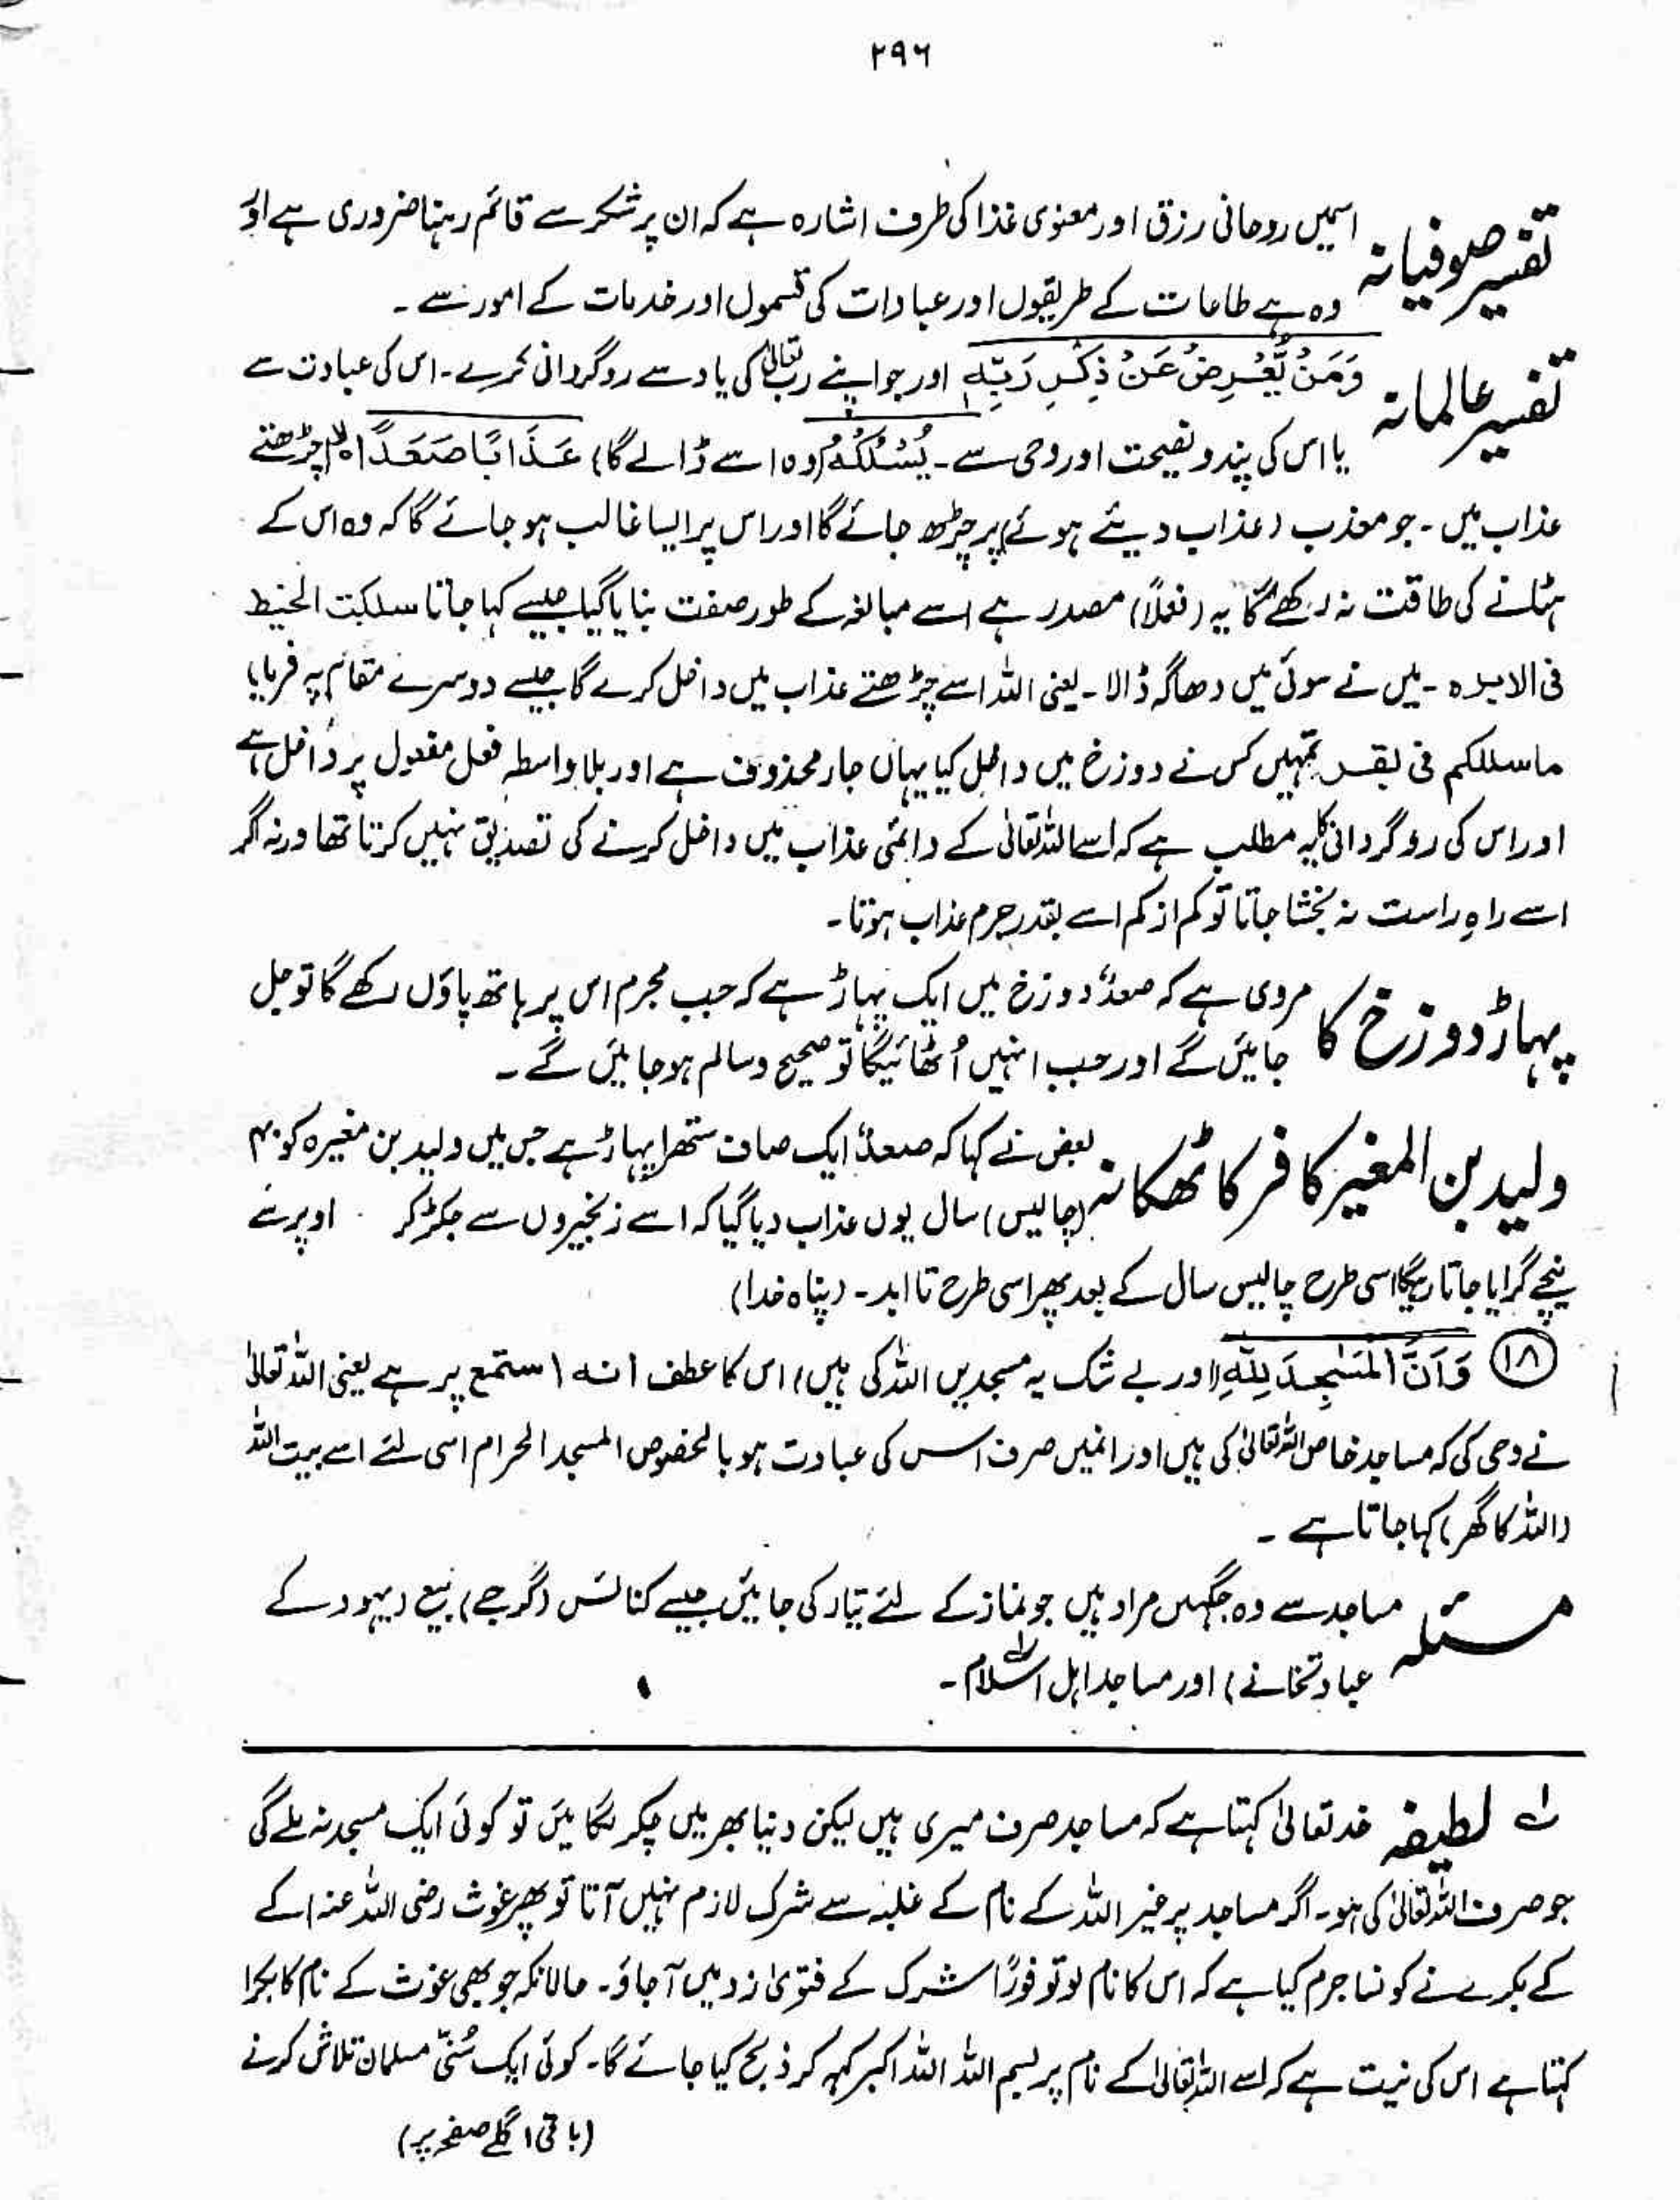 ۲۹۶
تفسیر صوفیانہ اسمیں روحانی رزق اور معنوی غذا کی طرف اشارہ ہے کہ ان پر شکر سے قائم رہنا ضروری ہے اور
وہ ہے طاعات کے طریقوں اور عبادات کی قسموں اور خدمات کے امور سے ۔
تفسیر عالمانہ وَمَنْ يُّعْرِضْ عَنْ ذِكْرِ رَبِّهٖ اور جو اپنے رب تعالیٰ کی یاد سے روگردانی کرے ۔ اس کی عبادت سے
یا اس کی پند و نصیحت اور وحی سے ۔ يَسْلُكْهُ (وہ اسے ڈالے گا) عَذَابًا صَعَدًا ہ لا چڑھتے
عذاب میں ۔ جو معذب (عذاب دیئے ہوئے) پر چڑھ جائے گا اور اس پر ایسا غالب ہو جائے گا کہ وہ اس کے
ہٹانے کی طاقت نہ رکھے گا یہ (فعلاً) مصدر ہے اسے مبالغہ کے طور صفت بنایا گیا جیسے کہا جاتا سلکت الخیط
فی الابرہ ۔ میں نے سوئی میں دھاگہ ڈالا ۔ یعنی اللہ اسے چڑھتے عذاب میں داخل کرے گا جیسے دوسرے مقام پہ فرمایا
ماسللکم فی بقسر تمہیں کس نے دوزخ میں داخل کیا یہاں جار محذوف ہے اور بلا واسطہ فعل مفعول پر داخل ہے
اور اس کی روگردانی کا یہ مطلب ہے کہ اسے اللہ تعالیٰ کے دائمی عذاب میں داخل کرنے کی تصدیق نہیں کرتا تھا ورنہ اگر
اسے راہِ راست نہ بخشا جاتا تو کم از کم اسے بقدر جرم عذاب ہوتا ۔
پہاڑ دوزخ کا مروی ہے کہ صعدًا دوزخ میں ایک پہاڑ ہے کہ جب مجرم اس پر ہاتھ پاؤں رکھے گا تو جل
جائیں گے اور جب انہیں اُٹھائیگا تو صحیح و سالم ہو جائیں گے ۔
ولید بن المغیر کافر کا ٹھکانہ بعض نے کہا کہ صعدًا ایک صاف ستھرا پہاڑ ہے جس میں ولید بن مغیرہ کو ۴۰
(چالیس) سال یوں عذاب دیا گیا کہ اسے زنجیروں سے جکڑ کر اوپر سے
نیچے گرایا جاتا رہیگا اسی طرح چالیس سال کے بعد پھر اسی طرح تا ابد ۔ (پناہ خدا)
۱۸ وَاَنَّ الْمَسٰجِدَ لِلّٰهِ (اور بے شک یہ مسجدیں اللہ کی ہیں) اس کا عطف انہ استمع پر ہے یعنی اللہ تعالیٰ
نے وحی کی کہ مساجد خاص اللہ تعالیٰ کی ہیں اور انمیں صرف اس کی عبادت ہو بالخصوص المسجد الحرام اسی لئے اسے بیت اللہ
(اللہ کا گھر) کہا جاتا ہے ۔
مسئلہ مساجد سے وہ جگہیں مراد ہیں جو نماز کے لئے تیار کی جائیں جیسے کنائس (گرجے) بیع (یہود کے
عبادتخانے) اور مساجد اہل اسلام ۔ ؎۱
؎۱ لطیفہ خدا تعالیٰ کہتا ہے کہ مساجد صرف میری ہیں لیکن دنیا بھر میں چکر لگائیں تو کوئی ایک مسجد نہ ملے گی
جو صرف اللہ تعالیٰ کی ہو ۔ اگر مساجد پر غیر اللہ کے نام کے غلبہ سے شرک لازم نہیں آتا تو پھر غوث رضی اللہ عنہ کے
کے بکرے نے کونسا جرم کیا ہے کہ اس کا نام لو تو فورًا شرک کے فتویٰ زد میں آجاؤ ۔ حالانکہ جو بھی غوث کے نام کا بکرا
کہتا ہے اس کی نیت ہے کہ اسے اللہ تعالیٰ کے نام پر بسم اللہ اللہ اکبر کہہ کر ذبح کیا جائے گا ۔ کوئی ایک سُنّی مسلمان تلاش کرنے
(باقی اگلے صفحہ پر)